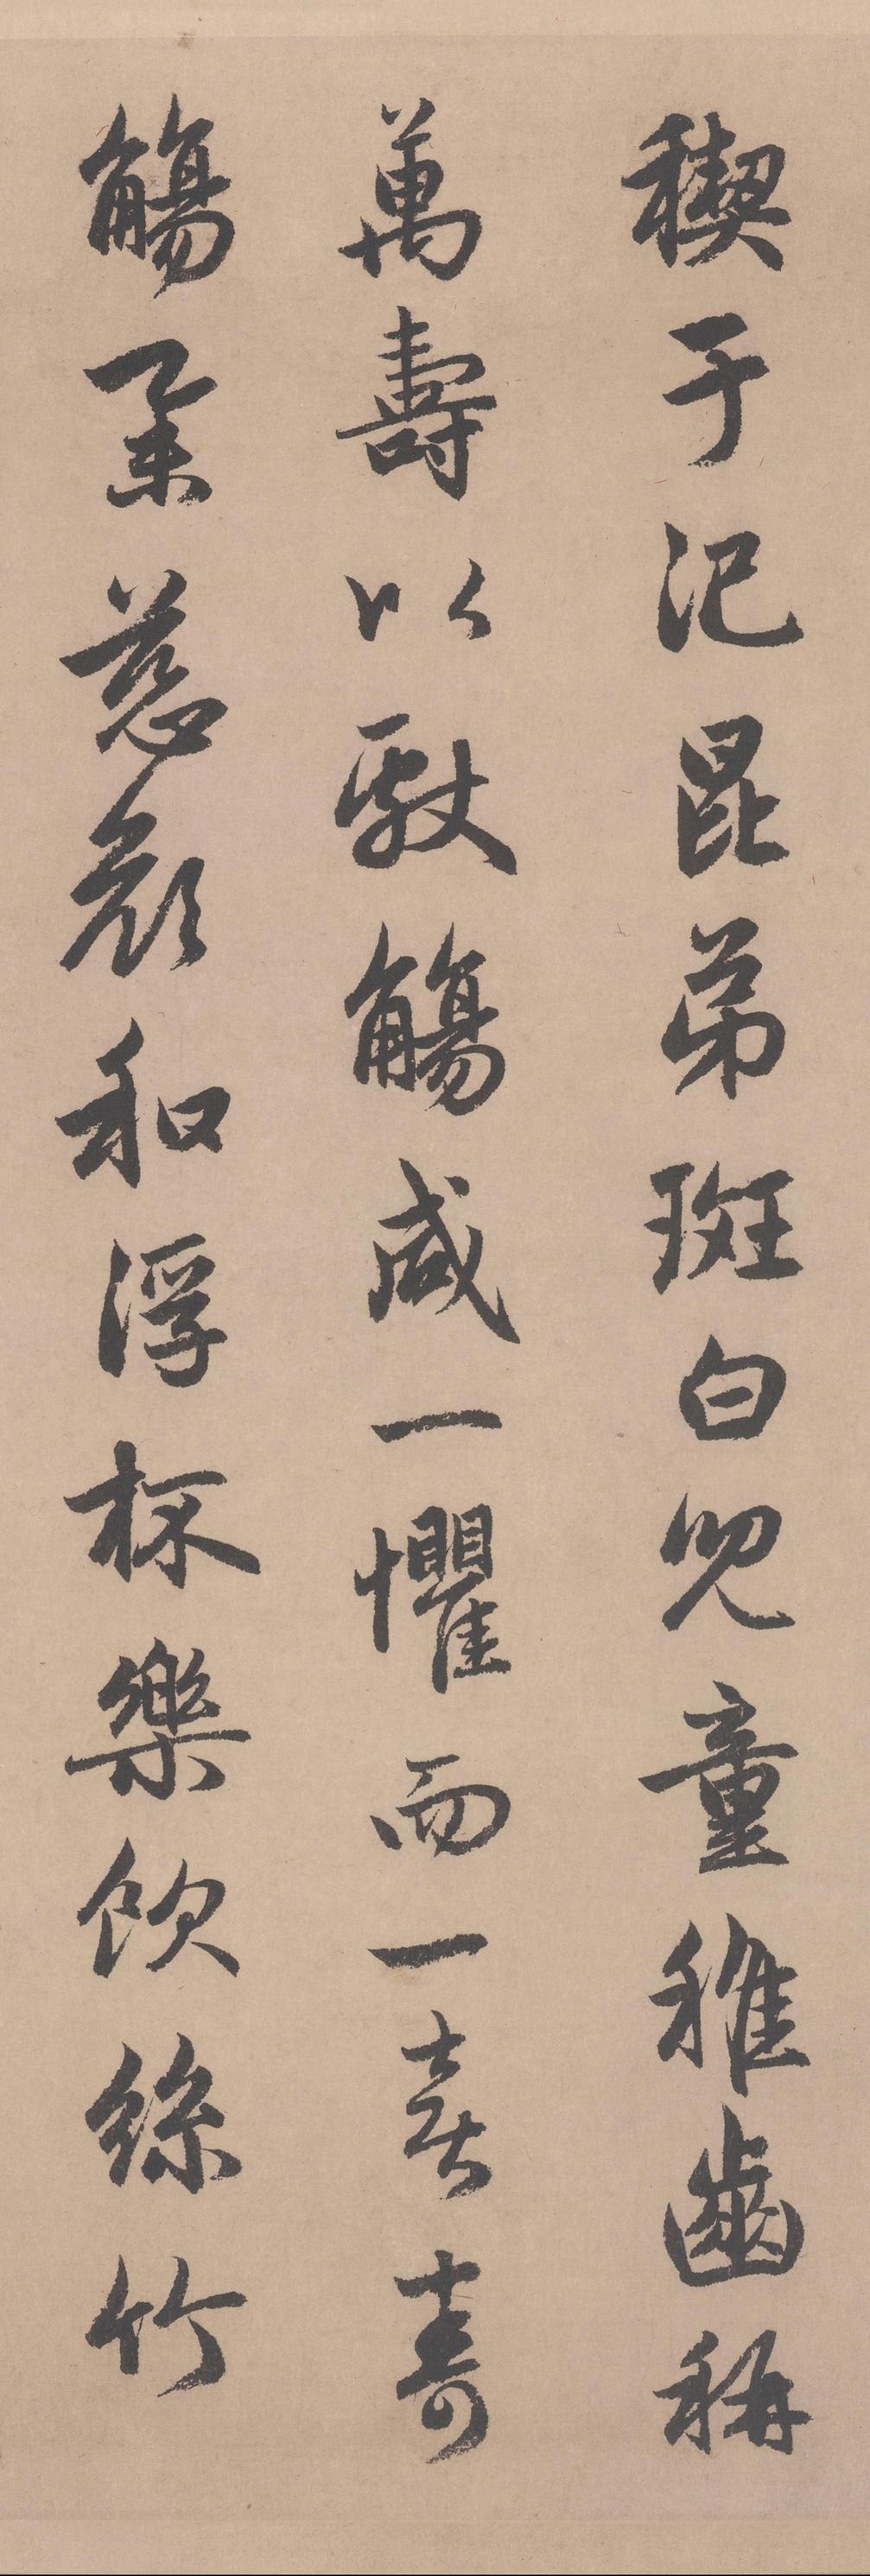 禊于汜昆弟斑白兒童稚齒稱
萬壽以獻觴咸一懼而一喜壽
觴舉慈顏和浮杯樂飲絲竹